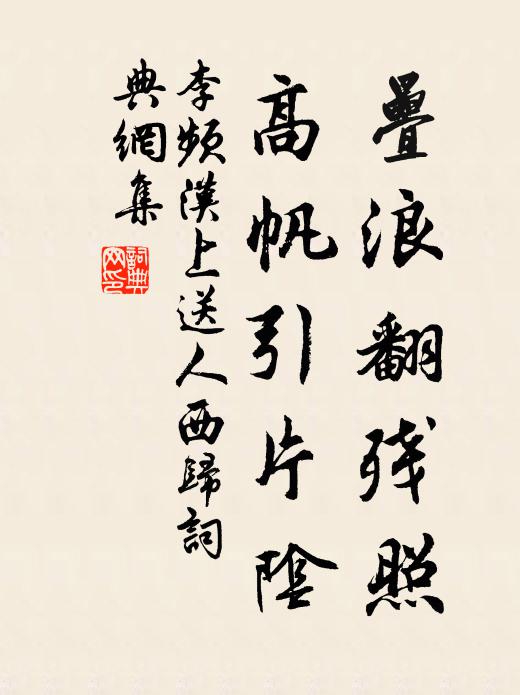 疊浪翻残照
高帆引片陰
李頻漢上送人西歸詞
典網集
詞典網印